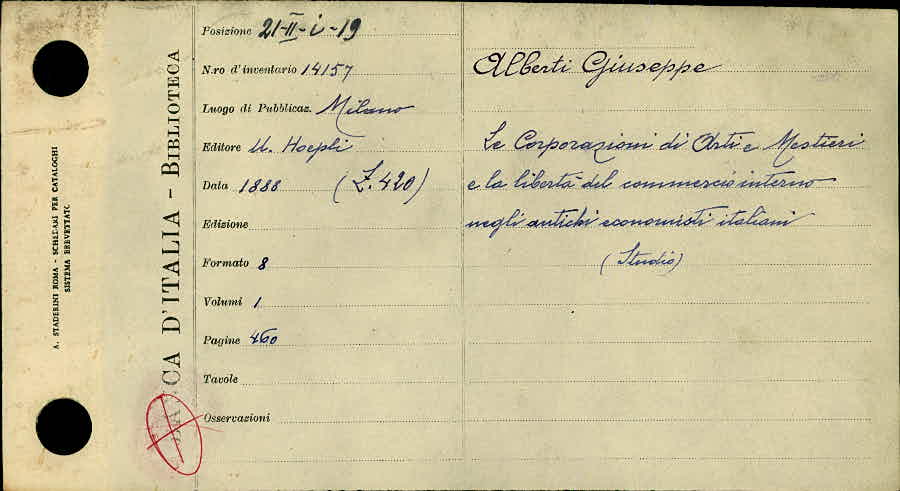 A. STADERINI ROMA - SCHEDARI PER CATALOGHI
SISTEMA BREVETTATO
BANCA D'ITALIA - BIBLIOTECA
Posizione 21-II-i-19
N.ro d'inventario 14157
Luogo di Pubblicaz. Milano
Editore U. Hoepli
Data 1888 (£. 420)
Edizione
Formato 8
Volumi 1
Pagine 460
Tavole
Osservazioni
Alberti Giuseppe
Le Corporazioni di Arti e Mestieri
e la libertà del commercio interno
negli antichi economisti italiani
(Studio)